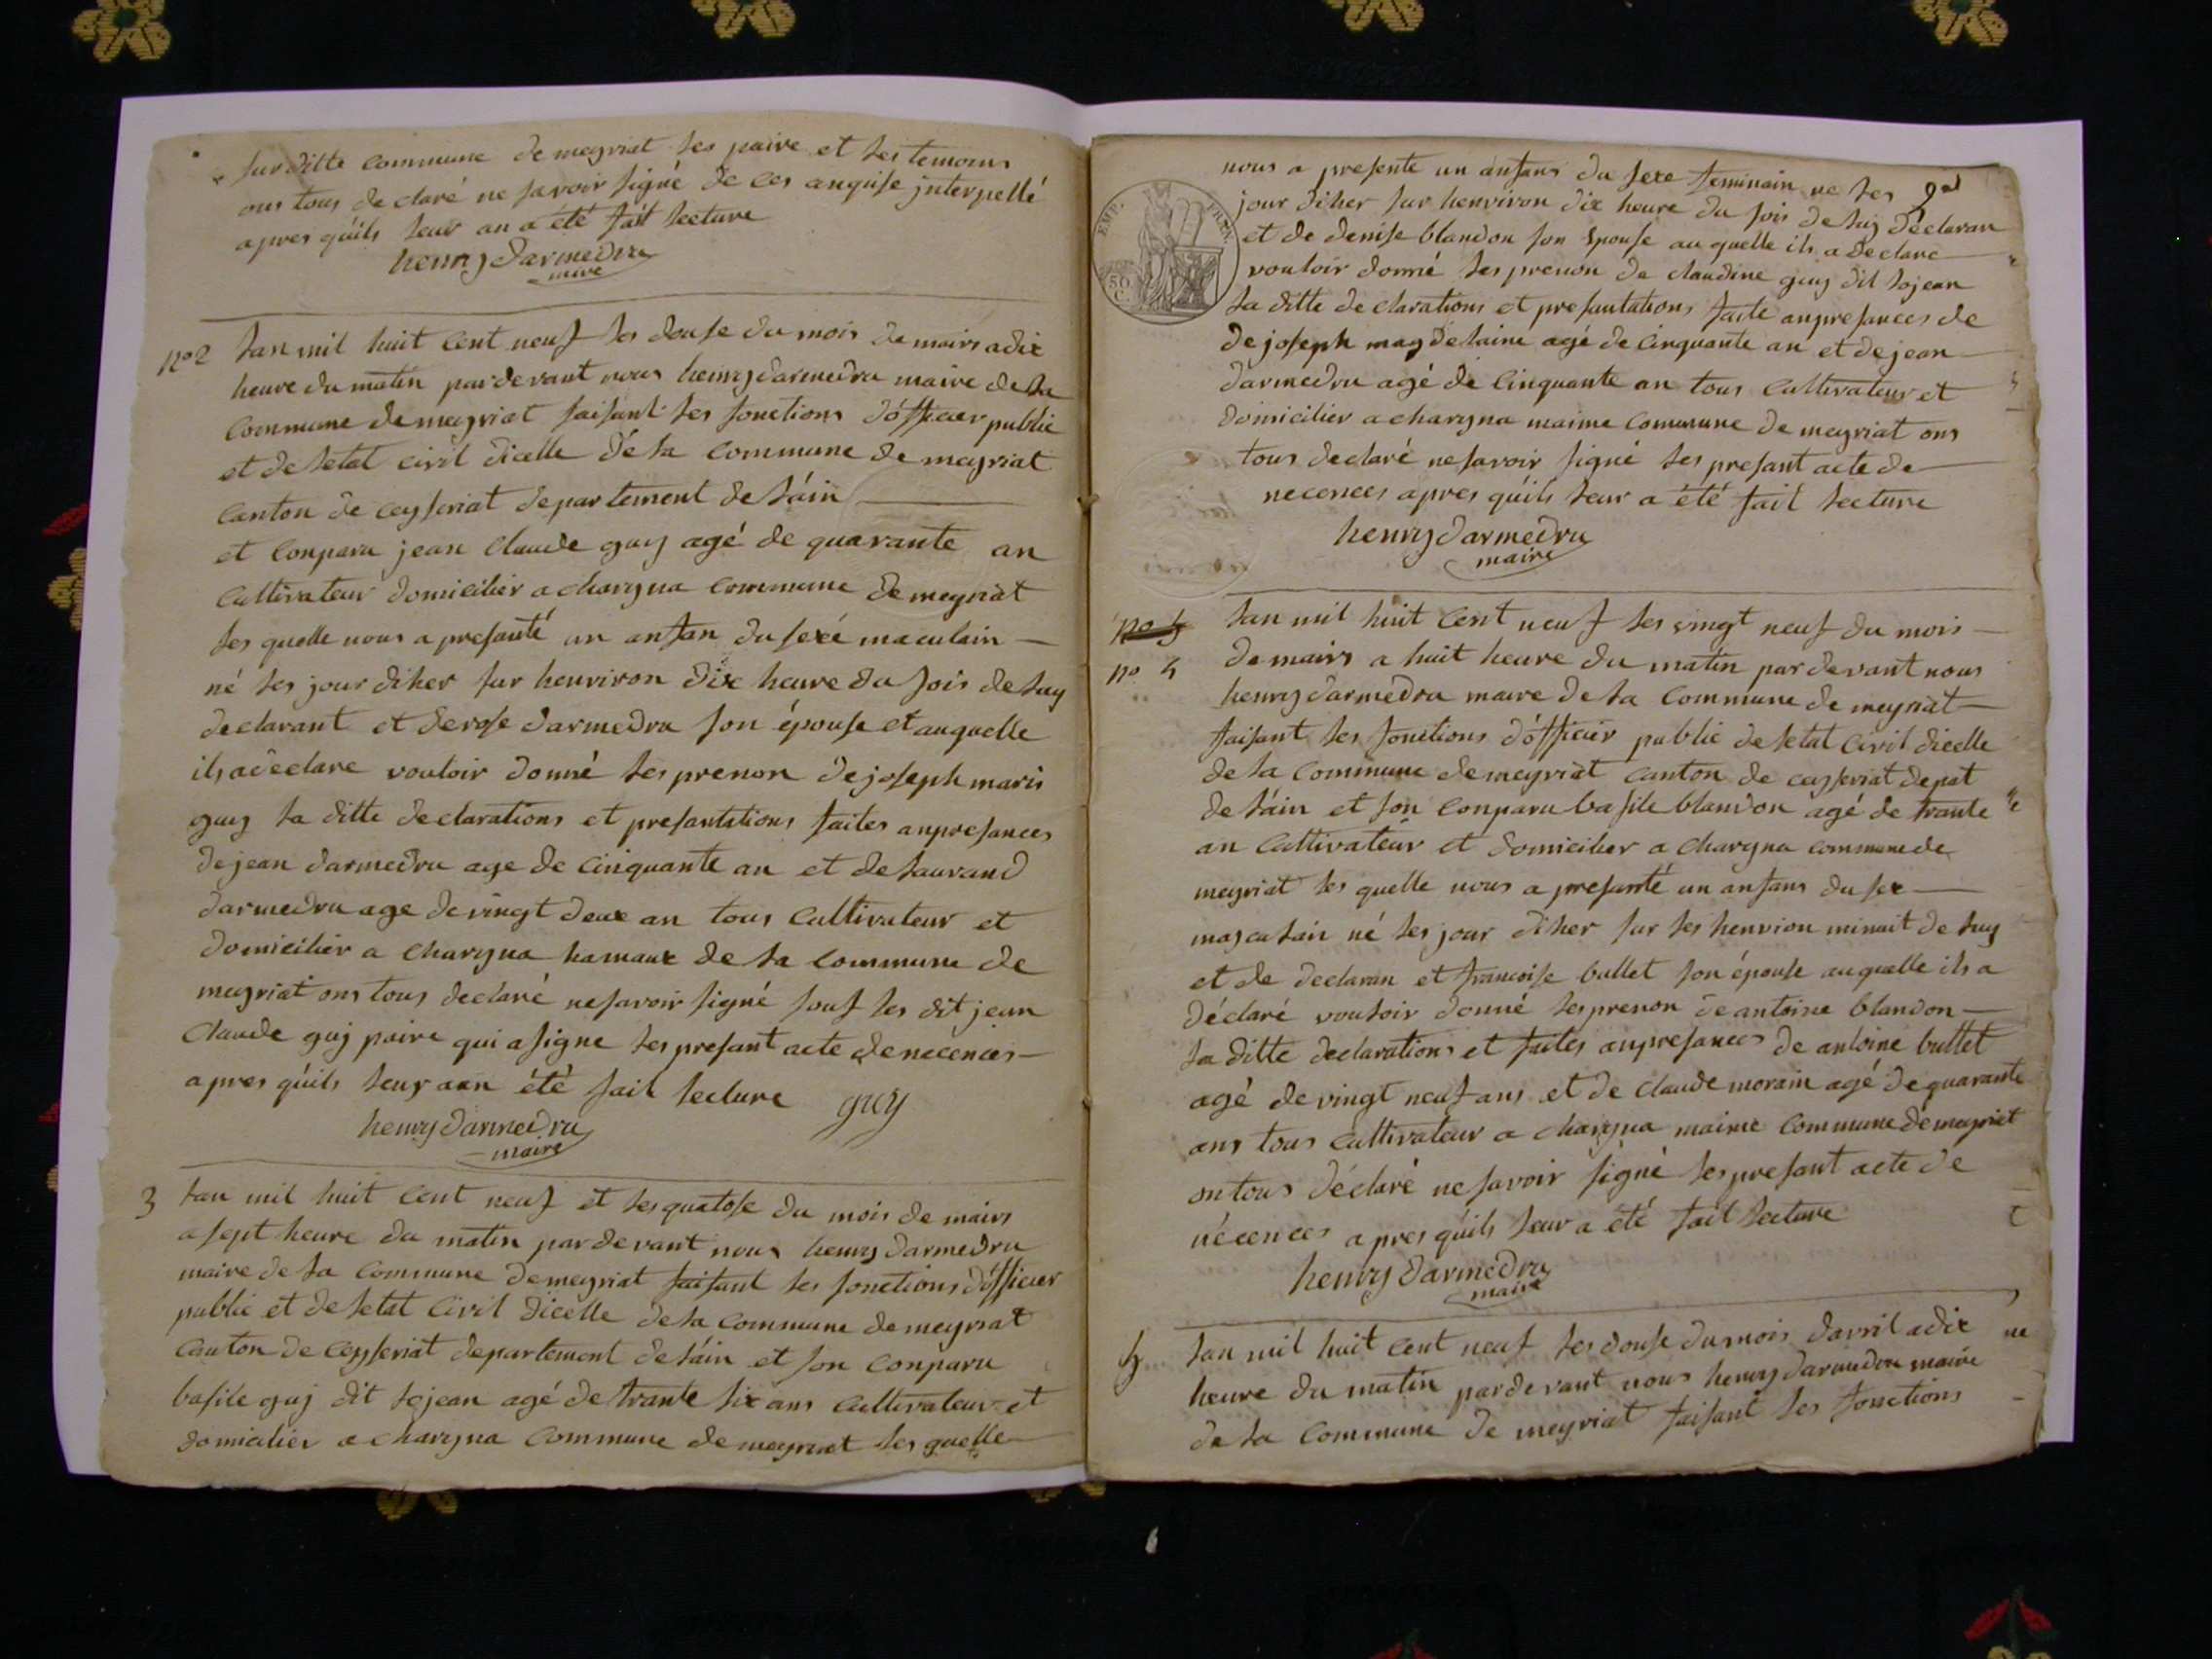 surditte commune de meyriat les paire et les temoins
ons tous declaré ne savoir signé de ces anquise interpellé
apres quils leur an a été fait lecture
henry Darmedru
maire
no 2 Lan mil huit Cent neuf les douse du mois de mairs a dix
heure du matin pardevant nous henry darmedru maire de la
Commune de meyriat faisant les fonctions dófficier public
et de letat civil dicelle de la Commune de meyriat
Canton de ceyseriat departement de láin
et Conparu jean Claude guy agé de quarante an
Cultivateur domicilier a charyna commune de meyriat
les quelle nous a presanté an anfan du sexé maculain
né les jour diher sur henviron dix heure du sois de luy
declarant et de rose darmedru son épouse et auquelle
ils a declare vouloir donné les prenon de joseph maris
guy la ditte declarations et presantations faites anpresances
de jean darmedru age de cinquante an et de laurand
darmedru age de vingt deux an tous Cultivateur et
domicilier a charyna hamaux de la Commune de
meyriat ons tous declaré ne savoir signé souf les dit jean
Claude guy paire qui a signe les presant acte de necences
apres quils leur aan été fait lecture guy
henry Darmedru
maire
3 Lan mil huit Cent neuf et les quatose du mois de mairs
a sept heure du matin pardevant nous henry darmedru
maire de la Commune de meyriat faisant les fonctions dófficier
public et de letat Civil dicelle de la Commune de meyriat
Canton de Ceyseriat departement de láin et son Conparu
basile guy dit lojean agé de trante six ans Cultivateur et
domicilier a charyna Commune de meyriat les quelle
EMP. FRAN.
50
C.
nous a presente un anfans du sexe feminain ne les
jour diher sur henviron dix heure du sois de luy Déclaran
et de denise blandon son Epouse au quelle ils a declare
vouloir donné les prenon de claudine guy dit lojean
la ditte declarations et presantations faite anpresances de
de joseph magdelaine agé de Cinquante an et de jean
darmedru agé de Cinquante an tous Cultivateur et
domicilier a charyna maime Commune de meyriat ons
tous declaré ne savoir signé les presant acte de
necences apres quils leur a été fait lecture
henry Darmedru
maire
no 5
no 4
Lan mil huit Cent neuf les vingt neuf du mois
de mairs a huit heure du matin pardevant nous
henry darmedru maire de la Commune de meyriat
faisant les fonctions dófficier public de letat Civil dicelle
de la Commune de meyriat Canton de ceyseriat depat
de láin et son Conparu basile blandon agé de trante
an Cultivateur et domicilier a charyna commune de
meyriat les quelle nous a presanté un anfans du sex
mascutain né les jour diher sur les henvion minuit de luy
et de declaran et francoise bullet son épouse auquelle ils a
déclaré vouloir donné les prenon de antoine blandon
la ditte declarations et faites anpresances de antoine bullet
agé de vingt neuf ans et de Claude morain agé de quarante
ans tous Cultivateur a charyna maime Commune de meyriat
on tous déclaré ne savoir signé les presant acte de
nécences apres quils leur a été fait lecture
henry Darmedru
maire
5 Lan mil huit Cent neuf les douse du mois davril a dix
heure du matin pardevant nous henry darmedru maire
de la Commune de meyriat faisant les fonctions